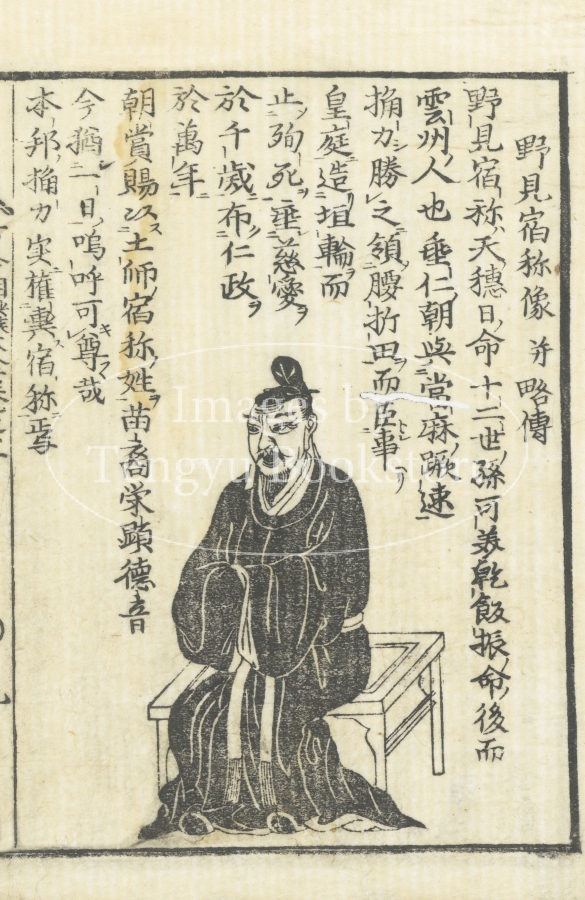 野見宿祢像 并略傳
野見宿祢天穗日命十二世孫可美乾飯振命後而
雲州人也垂仁朝與當麻蹶速
捔力勝之領腰折田而臣事
皇庭造埴輪而
止殉死垂慈愛
於千歳布仁政
於萬年
朝賞賜以土師宿祢姓苗裔栄顕德音
今猶一日嗚呼可尊哉
本邦捔力実權輿宿祢焉
Images by
Tengyu Bookstore